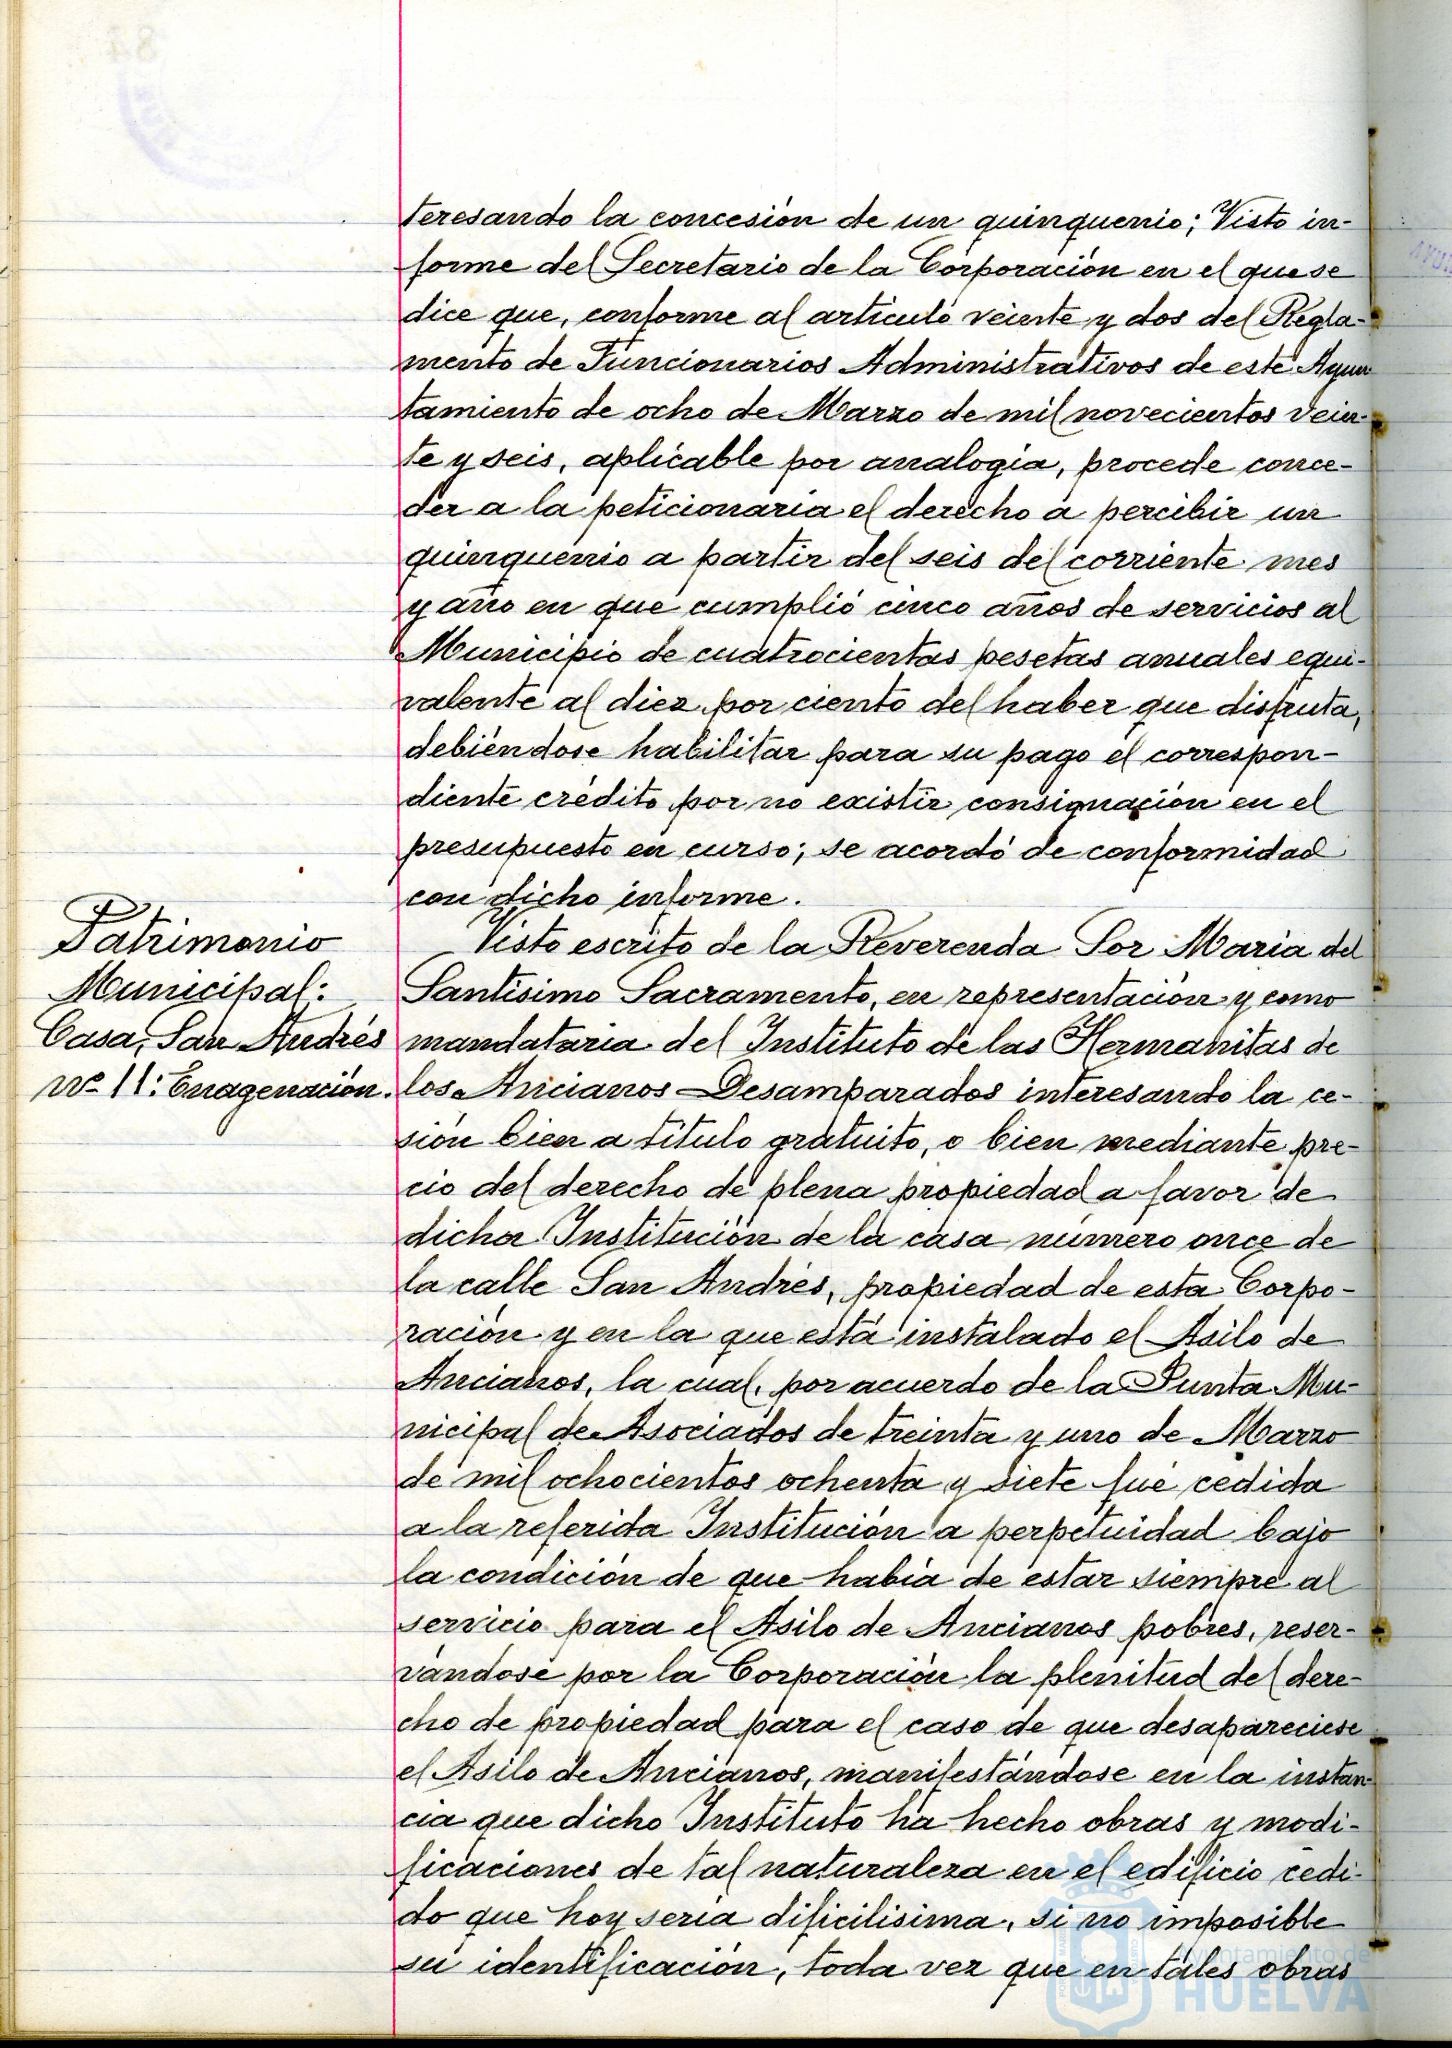 teresando la concesión de un quinquenio; Visto in-
forme del Secretario de la Corporación en el que se
dice que, conforme al artículo veinte y dos del Regla-
mento de Funcionarios Administrativos de este Ayun
tamiento de ocho de Marzo de mil novecientos vein-
te y seis, aplicable por analogía, procede conce-
der a la peticionaria el derecho a percibir un
quinquenio a partir del seis del corriente mes
y año en que cumplió cinco años de servicios al
Municipio de cuatrocientas pesetas anuales equi-
valente al diez por ciento del haber que disfruta,
debiéndose habilitar para su pago el correspon-
diente crédito por no existir consignación en el
presupuesto en curso; se acordó de conformidad
con dicho informe.
Patrimonio
Municipal:
Casa, San Andrés
nº 11: Enagenación.
Visto escrito de la Reverenda Sor Maria del
Santísimo Sacramento, en representación y como
mandataria del Instituto de las Hermanitas de
los Ancianos Desamparados interesando la ce-
sión bien a título gratuito, o bien mediante pre-
cio del derecho de plena propiedad a favor de
dicha Institución de la casa número once de
la calle San Andrés, propiedad de esta Corpo-
ración y en la que está instalado el Asilo de
Ancianos, la cual, por acuerdo de la Junta Mu-
nicipal de Asociados de treinta y uno de Marzo
de mil ochocientos ochenta y siete fué cedida
a la referida Institución a perpetuidad bajo
la condición de que había de estar siempre al
servicio para el Asilo de Ancianos pobres, reser-
vándose por la Corporación la plenitud del dere-
cho de propiedad para el caso de que desapareciese
el Asilo de Ancianos, manifestándose en la instan-
cia que dicho Instituto ha hecho obras y modi-
ficaciones de tal naturaleza en el edificio cedi-
do que hoy sería dificilísima, si no imposible
su identificación, toda vez que en tales obras
Ayuntamiento de
HUELVA